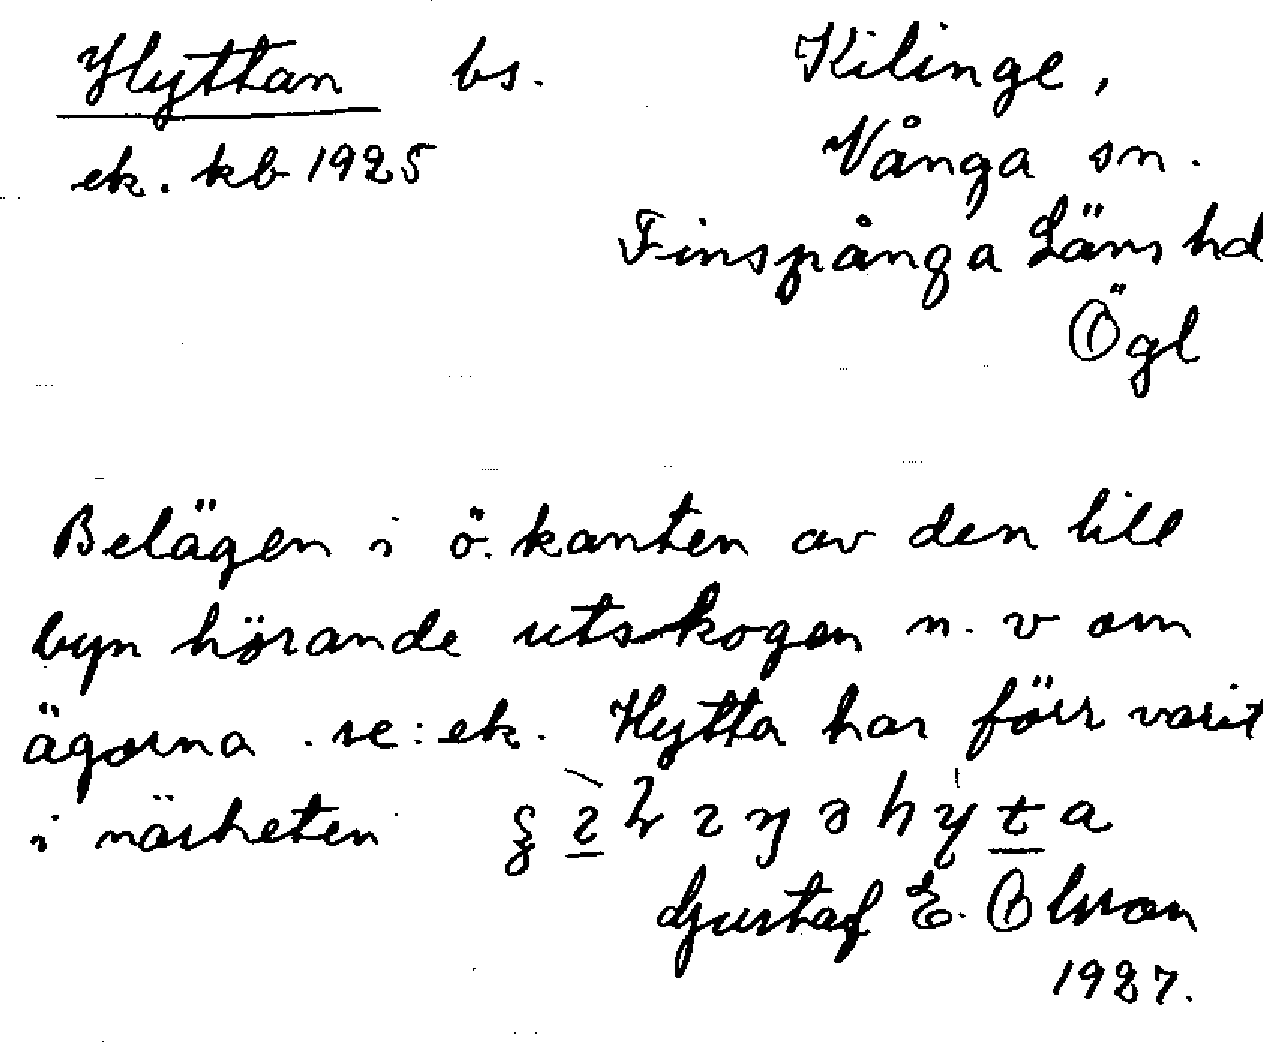 Hyttan bs. Kilinge,
ek. kb 1925 Vånga sn.
Finspånga Läns hd
Ögl
Belägen i ö. kanten av den till
byn hörande utskogen n. v om
ägorna . se: ek. Hytta har förr varit
i närheten
Gustaf E. Olsson
1927.